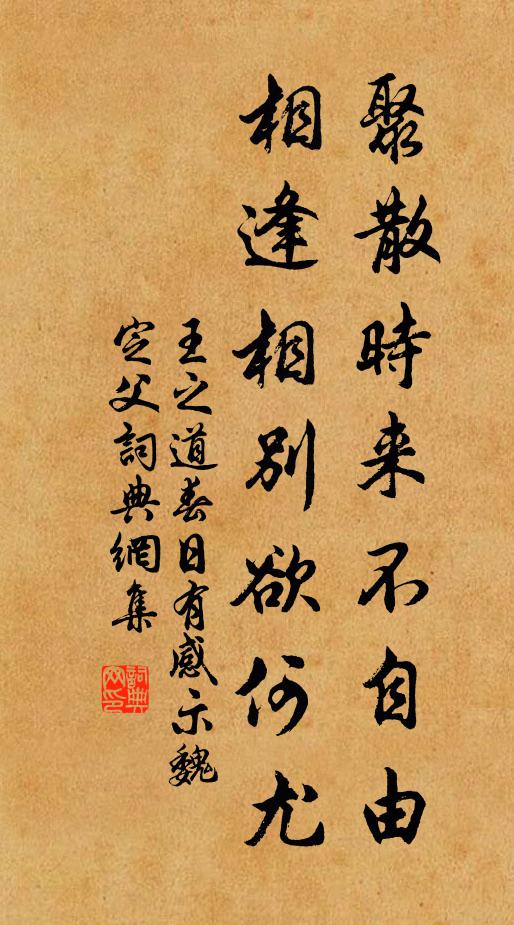 聚散時来不自由
相逢相別欲何尤
王之道春日有感示魏
定父詞典網集
詞典
网印